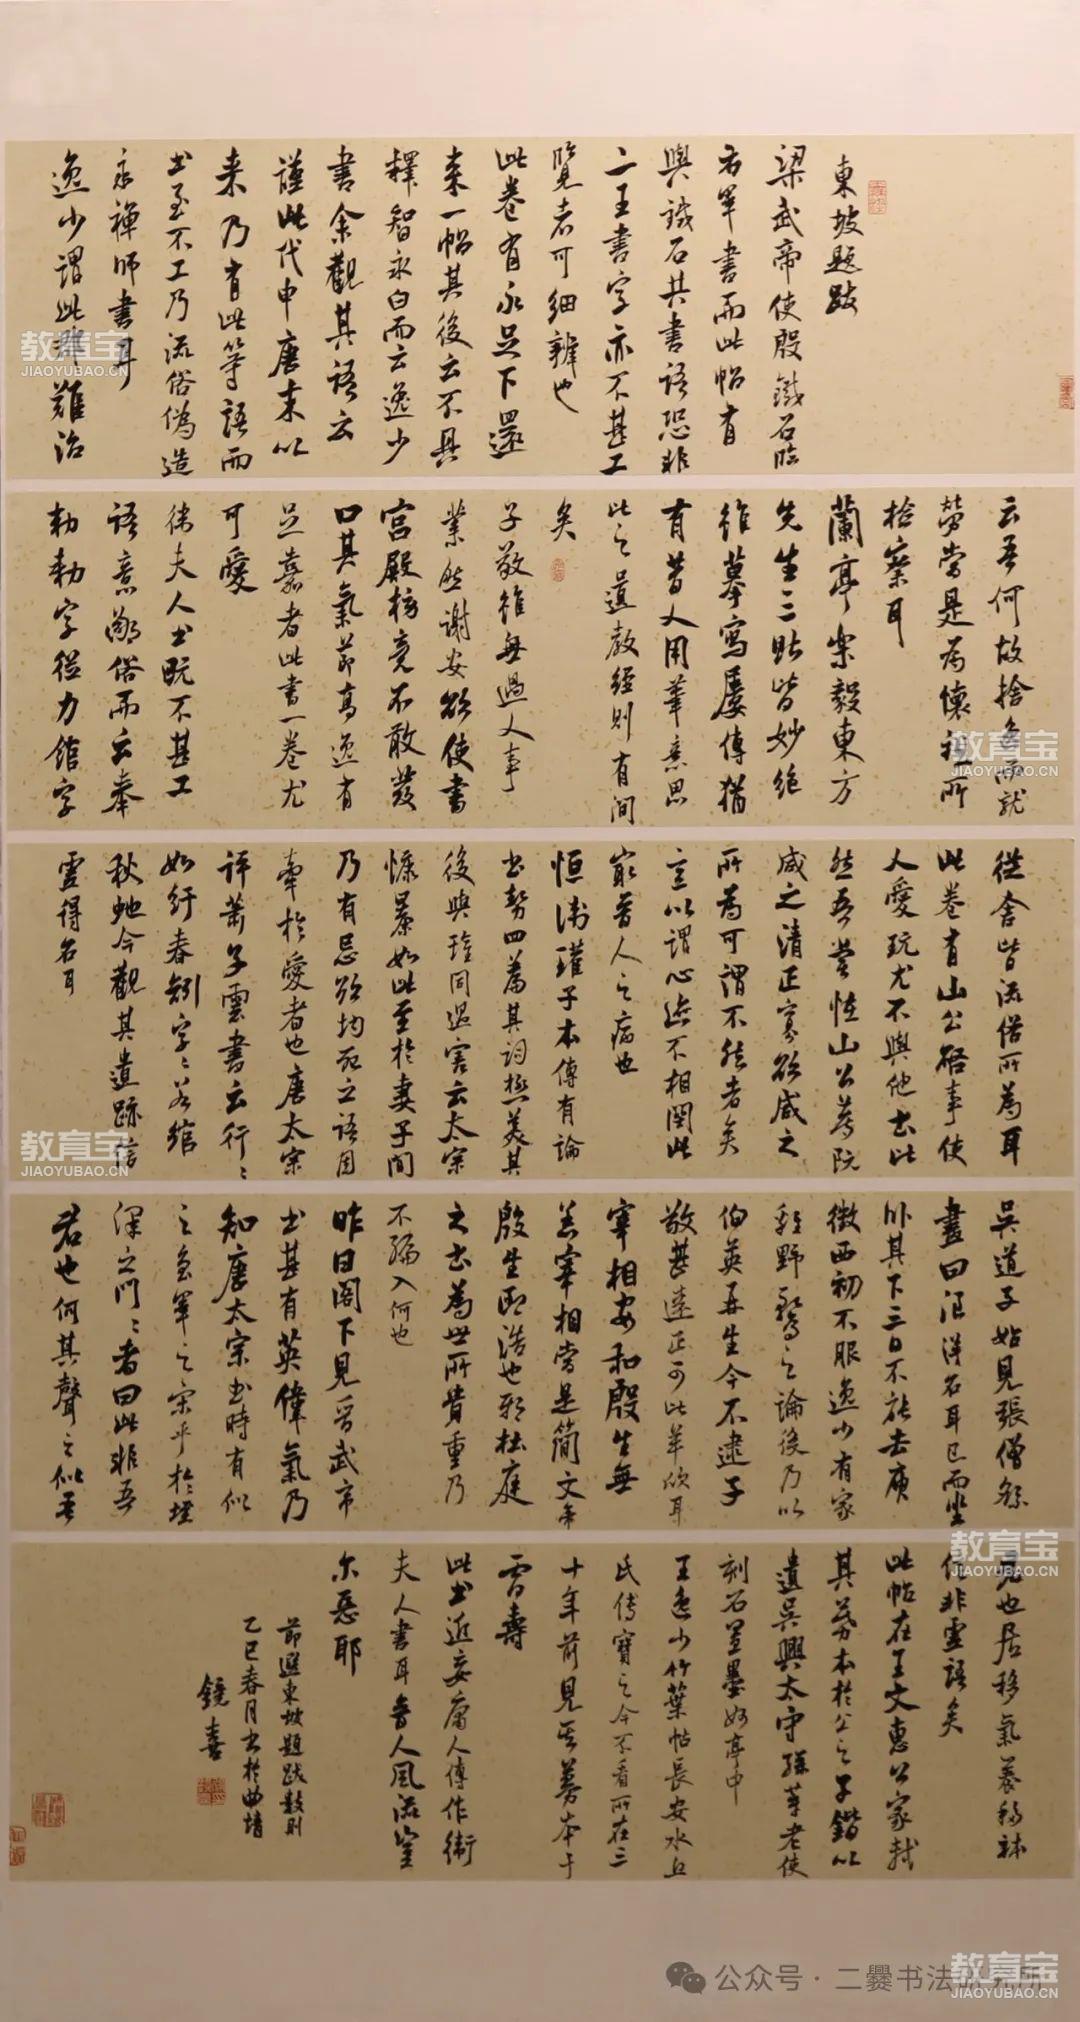 東坡題跋
梁武帝使殷鐵石臨
右軍書而此帖有
與鐵石共書語恐非
二王書字亦不甚工
覽者可細辨也
此卷有永足下還
來一帖其後云不具
釋智永白而云逸少
書余觀其語云
謹此代申唐末以
來乃有此等語而
書至不工乃流俗偽造
永禪師書耳
逸少謂此郡難治
云吾何故捨逸而就
勞當是為懷祖所
檢察耳
蘭亭樂毅東方
先生三帖皆妙絕
雖摹寫屢傳猶
有昔人用筆意思
比之遺教經則有間
矣
子敬雖無過人事
業然謝安欲使書
宮殿榜竟不敢發
口其氣節高逸有
足嘉者此書一卷尤
可愛
衛夫人書既不甚工
語意鄙俗而云奉
勅勅字從力館字
從舍皆流俗所為耳
此卷有山公啓事使
人愛玩尤不與他書比
然吾嘗怪山公薦阮
咸之清正寡欲咸之
所為可謂不然者矣
意以謂心迹不相関此
最晉人之病也
恒衛瓘子本傳有論
書勢四篇其詞極美其
後與瓘同遇害云太宗
慓暴如此至於妻子間
乃有忌欲均死之語固
牽於愛者也唐太宗
評蕭子雲書云行〻
如紆春蚓字〻若綰
秋蛇今觀其遺跡信
虛得名耳
吳道子始見張僧繇
畫曰浪得名耳已而坐
卧其下三日不能去庾
徵西初不服逸少有家
雞野鶩之論後乃以
伯英再生今不逮子
敬甚遠正可比羊欣耳
宰相安和殷生無
恙宰相當是簡文帝
殷生即浩也邪杜庭
之書為世所貴重乃
不編入何也
昨日閣下見晉武帝
書甚有英偉氣乃
知唐太宗書時有似
之魯君之宋呼於垤
澤之門〻者曰此非吾
君也何其聲之似吾
君也居移氣養移體
信非虛語矣
此帖在王文惠公家軾
其摹本於公之子鍇以
遺吳興太守孫莘老使
刻石置墨妙亭中
王逸少竹葉帖長安水丘
氏傳寶之今不看所在三
十年前見其摹本于
雷壽
此書近妄庸人傳作衛
夫人書耳晉人風流豈
尔惡耶
節選東坡題跋數則
乙巳春月書於曲靖
鏡喜
教育宝
JIAOYUBAO.CN
教育宝
JIAOYUBAO.CN
教育宝
JIAOYUBAO.CN
教育宝
JIAOYUBAO.CN
教育宝
JIAOYUBAO.CN
公众号·二爨书法研究所
教育宝
JIAOYUBAO.CN